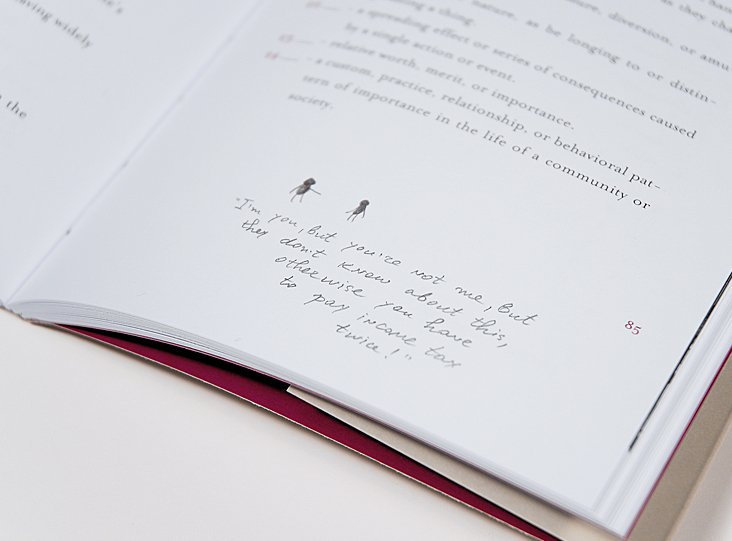 aving widely
the
a thing.
nature, as be longing to or distin-
- a spreading effect or series of consequences caused
by a single action or event.
- relative worth, merit, or importance.
- a custom, practice, relationship, or behavioral pat-
tern of importance in the life of a community or
society.
"I'm you, but you're not me, But
they don't know about this,
otherwise you have
to pay income tax
twice!"
85